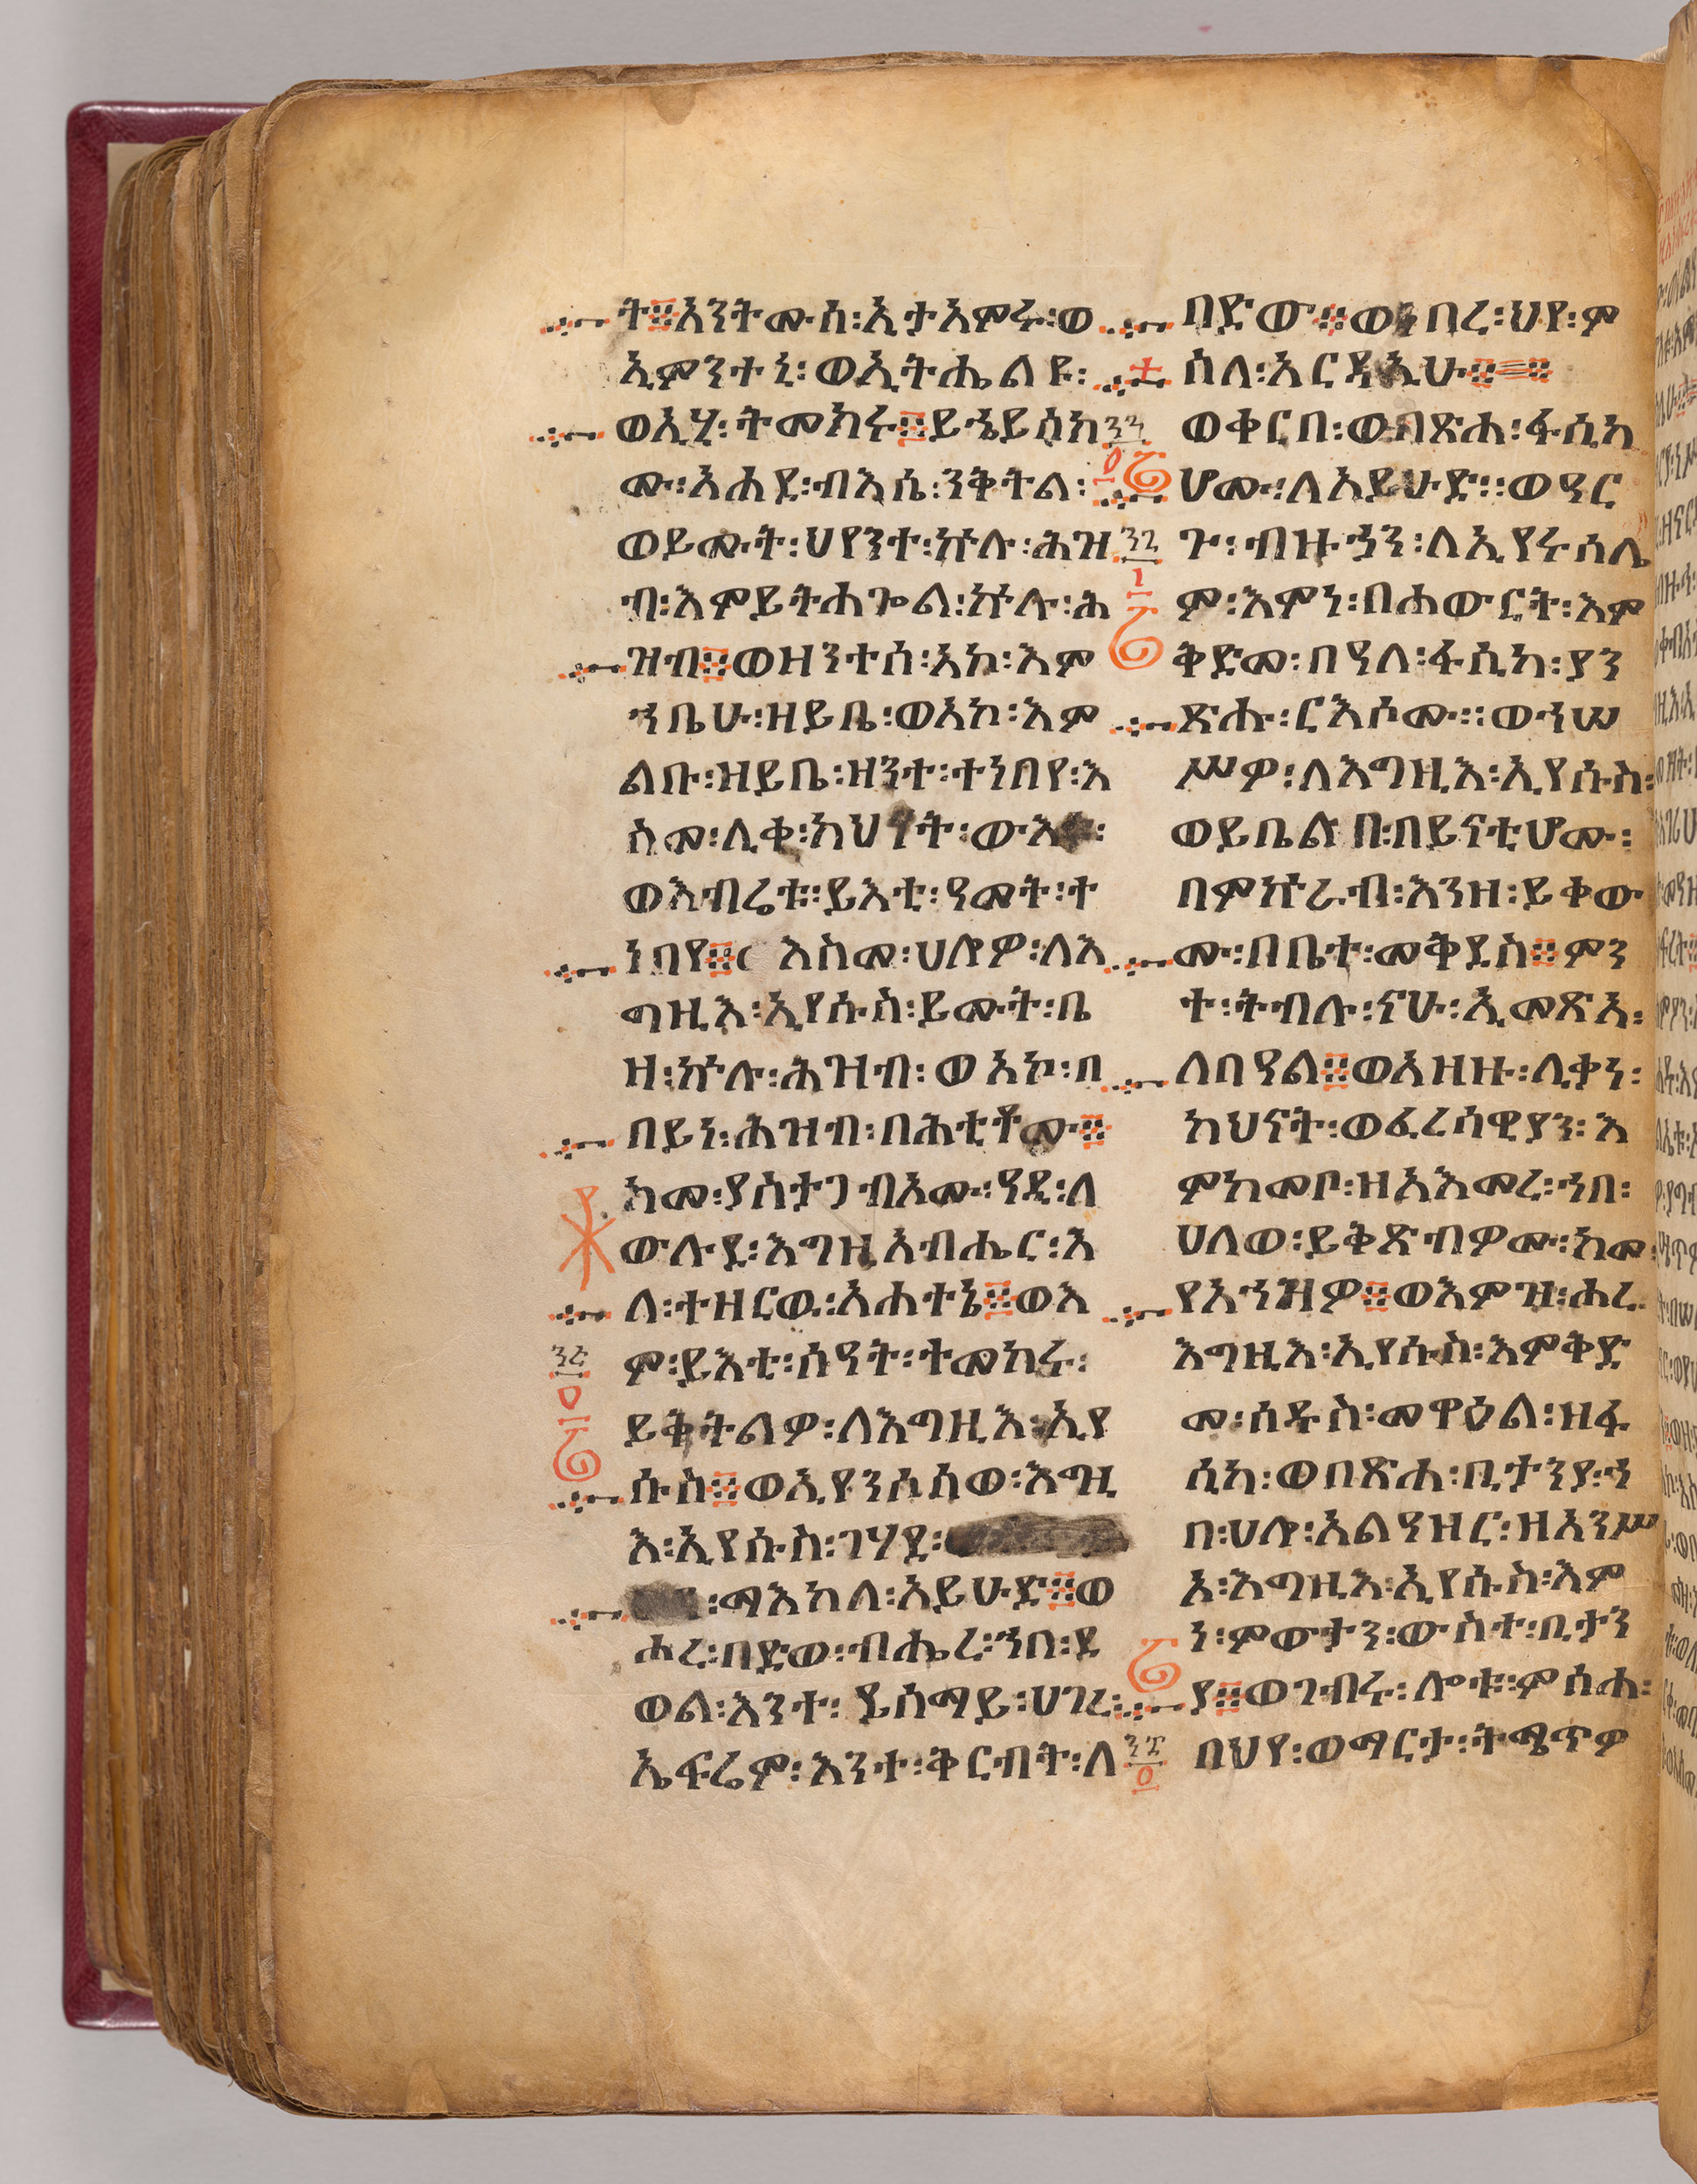 ት፨አንትሙሰ፡ኢታአምሩ፡ወ
ኢምንተኒ፡ወኢትሔልዩ፡
ወኢሂ፡ትመክሩ፨ይኄይሰክ
ሙ፡አሐዱ፡ብእሴ፡ንቅትል፡
ወይሙት፡ህየንተ፡ኵሉ፡ሕዝ
ብ፡እምይትሐጐል፡ኵሉ፡ሕ
ዝብ፨ወዘንተሰ፡አኮ፡እም
ኀቤሁ፡ዘይቤ፡ወአኮ፡እም
ልቡ፡ዝይቤ፡ዘንተ፡ተነበየ፡እ
ስመ፡ሊቀ፡ካህናት፡ውእቱ፡
ወእብሬቱ፡ይእቲ፡ዓመት፡ተ
ነበየ፨እስመ፡ሀለዎ፡ለእ
ግዚእ፡ኢየሱስ፡ይሙት፡ቤ
ዘ፡ኵሉ፡ሕዝብ፡ወአኮ፡በ
በይነ፡ሕዝብ፡በሕቲቶሙ፨
ከመ፡ያስታጋብኦሙ፡ዓዲ፡ለ
ውሉደ፡እግዚአብሔር፡እ
ለ፡ተዘርዉ፡አሐተኔ፨ወእ
ም፡ይእቲ፡ሰዓት፡ተመክሩ፡
ይቅትልዎ፡ለእግዚእ፡ኢየ
ሱስ፨ወኢያንሶሰወ፡እግዚ
እ፡ኢየሱስ፡ገሃደ፡
፡ማእከለ፡አይሁድ፨ወ
ሖረ፡በድወ፡ብሔረ፡ኀበ፡ደ
ወል፡እንተ፡ይሰማይ፡ሀገረ፡
ኤፍሬም፡እንተ፡ቅርብት፡ለ
በድው፨ወነበረ፡ህየ፡ም
ስለ፡አርዳኢሁ፨
ወቀርበ፡ወበጽሐ፡ፋሲካ
ሆሙ፡ለአይሁድ፡፡ወዓር
ጉ፡ብዙኃን፡ለኢየሩሰሌ
ም፡እምነ፡በሐውርት፡እም
ቅድመ፡በዓለ፡ፋሲካ፡ያን
ጽሑ፡ርእሶሙ፡፡ወኀሠ
ሥዎ፡ለእግዚእ፡ኢየሱስ፡
ወይቤሉ፡በበይናቲሆሙ፡
በምኵራብ፡እንዘ፡ይቀው
ሙ፡በቤተ፡መቅደስ፨ምን
ተ፡ትብሉ፡ናሁ፡ኢመጽአ፡
ለበዓል፨ወአዘዙ፡ሊቃነ፡
ካህናት፡ወፈረሳዊያን፡እ
ምከመቦ፡ዘአእመረ፡ኀበ፡
ሀለወ፡ይቅጽብዎሙ፡ከመ፡
የአኀዝዎ፨ወእምዝ፡ሖረ
እግዚእ፡ኢየሱስ፡እምቅድ
መ፡ሰዱስ፡መዋዕል፡ዘፋ
ሲካ፡ወበጽሐ፡ቢታንያ፡ኀ
በ፡ሀሎ፡አልዓዝር፡ዘአንሥ
አ፡እግዚእ፡ኢየሱስ፡እም
ነ፡ምውታን፡ውስተ፡ቢታን
ያ፨ወገብሩ፡ሎቱ፡ምሳሐ፡
በህየ፡ወማርታ፡ትሜጥዎ